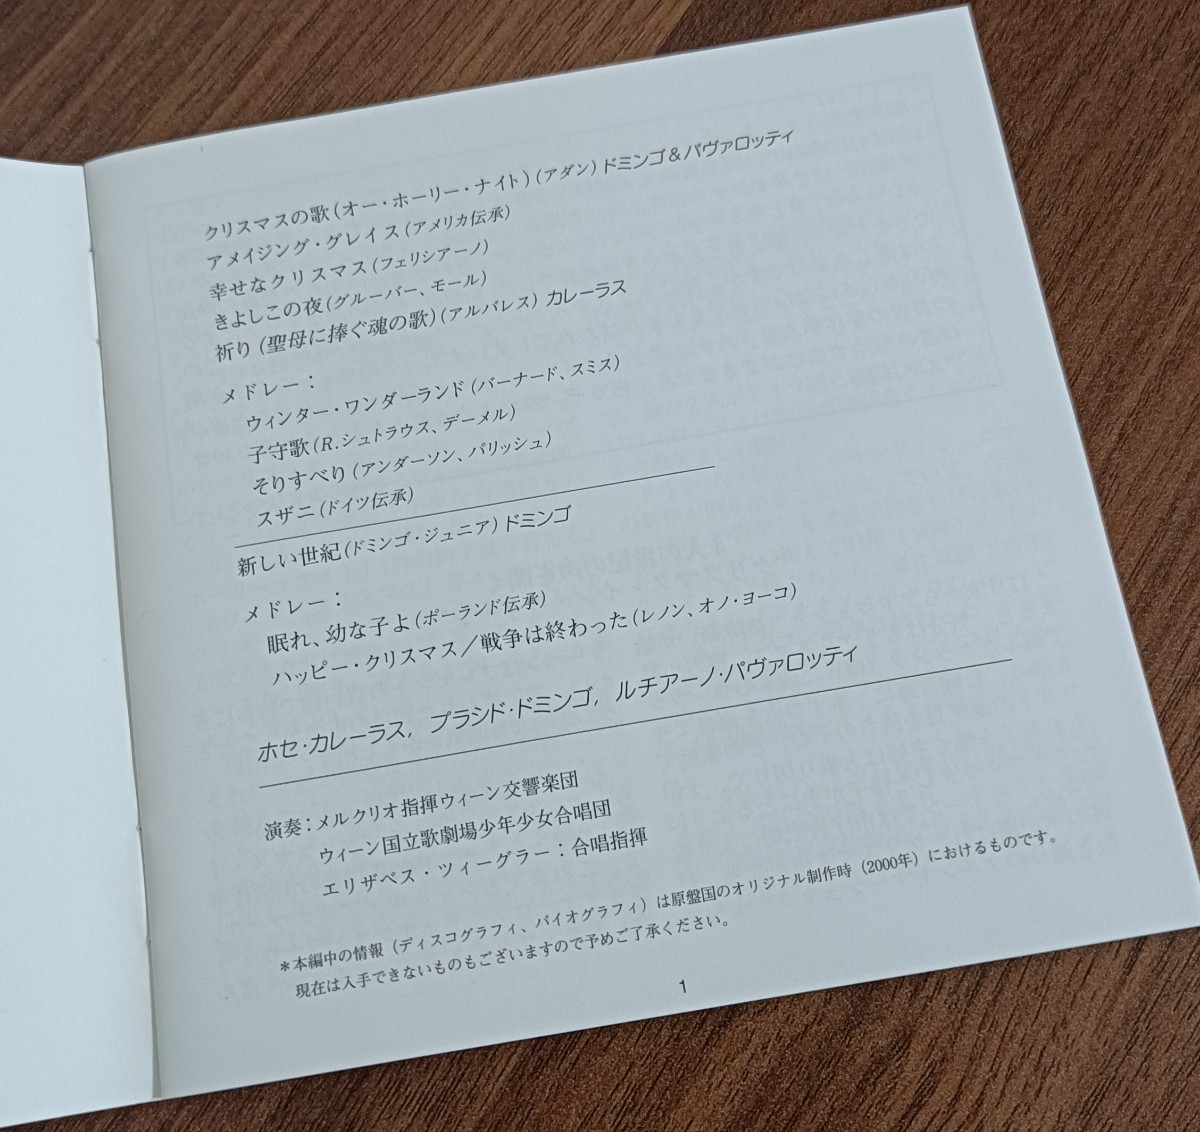 クリスマスの歌(オー・ホーリー・ナイト)(アダン)ドミンゴ&パヴァロッティ
アメイジング・グレイス(アメリカ伝承)
幸せなクリスマス(フェリシアーノ)
きよしこの夜(グルーバー、モール)
祈り(聖母に捧ぐ魂の歌)(アルバレス)カレーラス
メドレー:
ウィンター・ワンダーランド(バーナード、スミス)
子守歌(R.シュトラウス、デーメル)
そりすべり(アンダーソン、パリッシュ)
スザニ(ドイツ伝承)
新しい世紀(ドミンゴ・ジュニア)ドミンゴ
メドレー:
眠れ、幼な子よ(ポーランド伝承)
ハッピー・クリスマス/戦争は終わった(レノン、オノ・ヨーコ)
ホセ・カレーラス, プラシド・ドミンゴ, ルチアーノ・パヴァロッティ
演奏:メルクリオ指揮ウィーン交響楽団
ウィーン国立歌劇場少年少女合唱団
エリザベス・ツィーグラー:合唱指揮
*本編中の情報(ディスコグラフィ、バイオグラフィ)は原盤国のオリジナル制作時(2000年)におけるものです。
現在は入手できないものもございますので予めご了承ください。
1